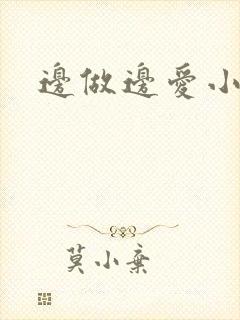 邊做邊愛小
莫小棄